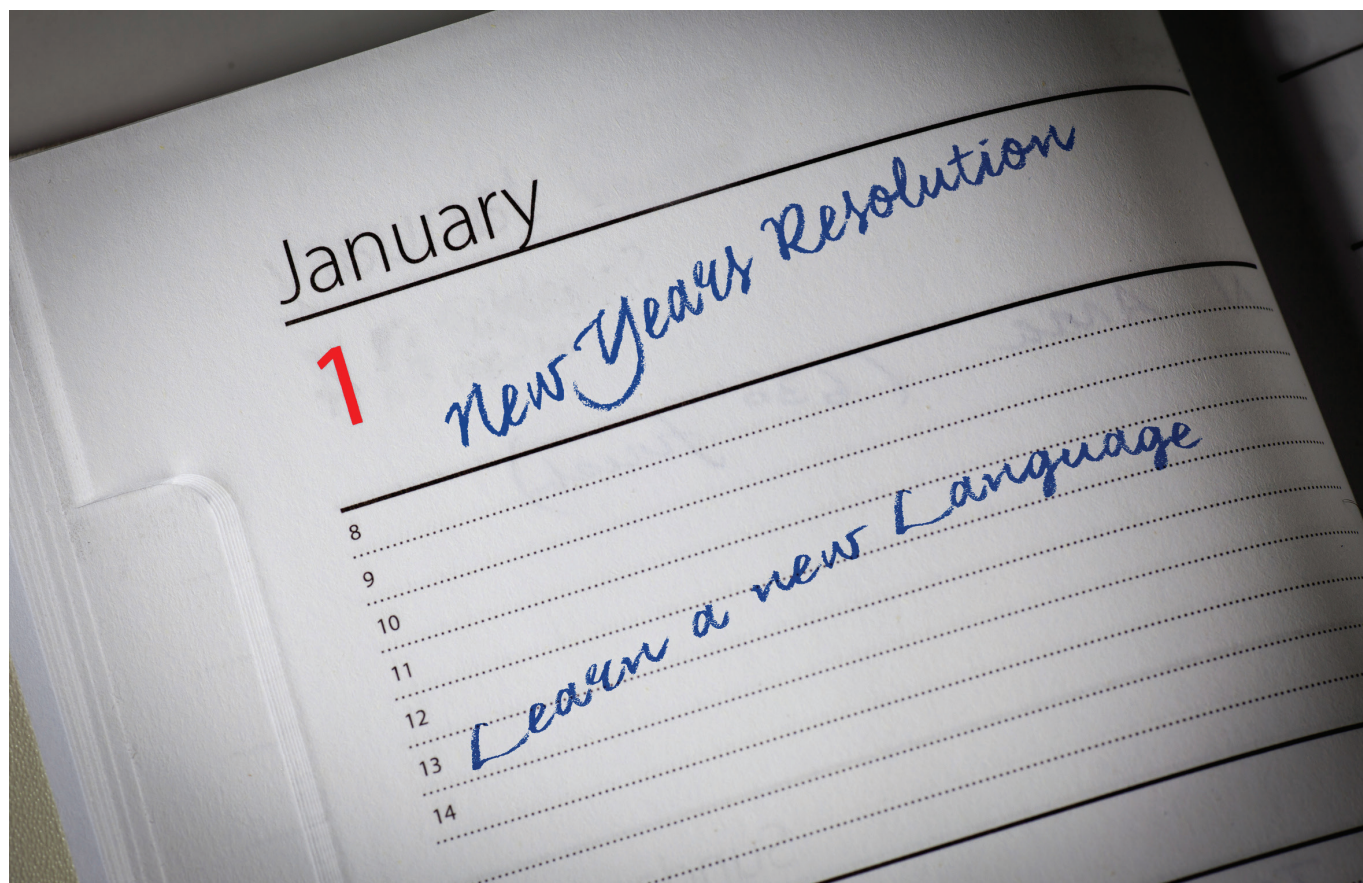 January
1 New Years Resolution
8
9
10
11
12
13 Learn a new Language
14